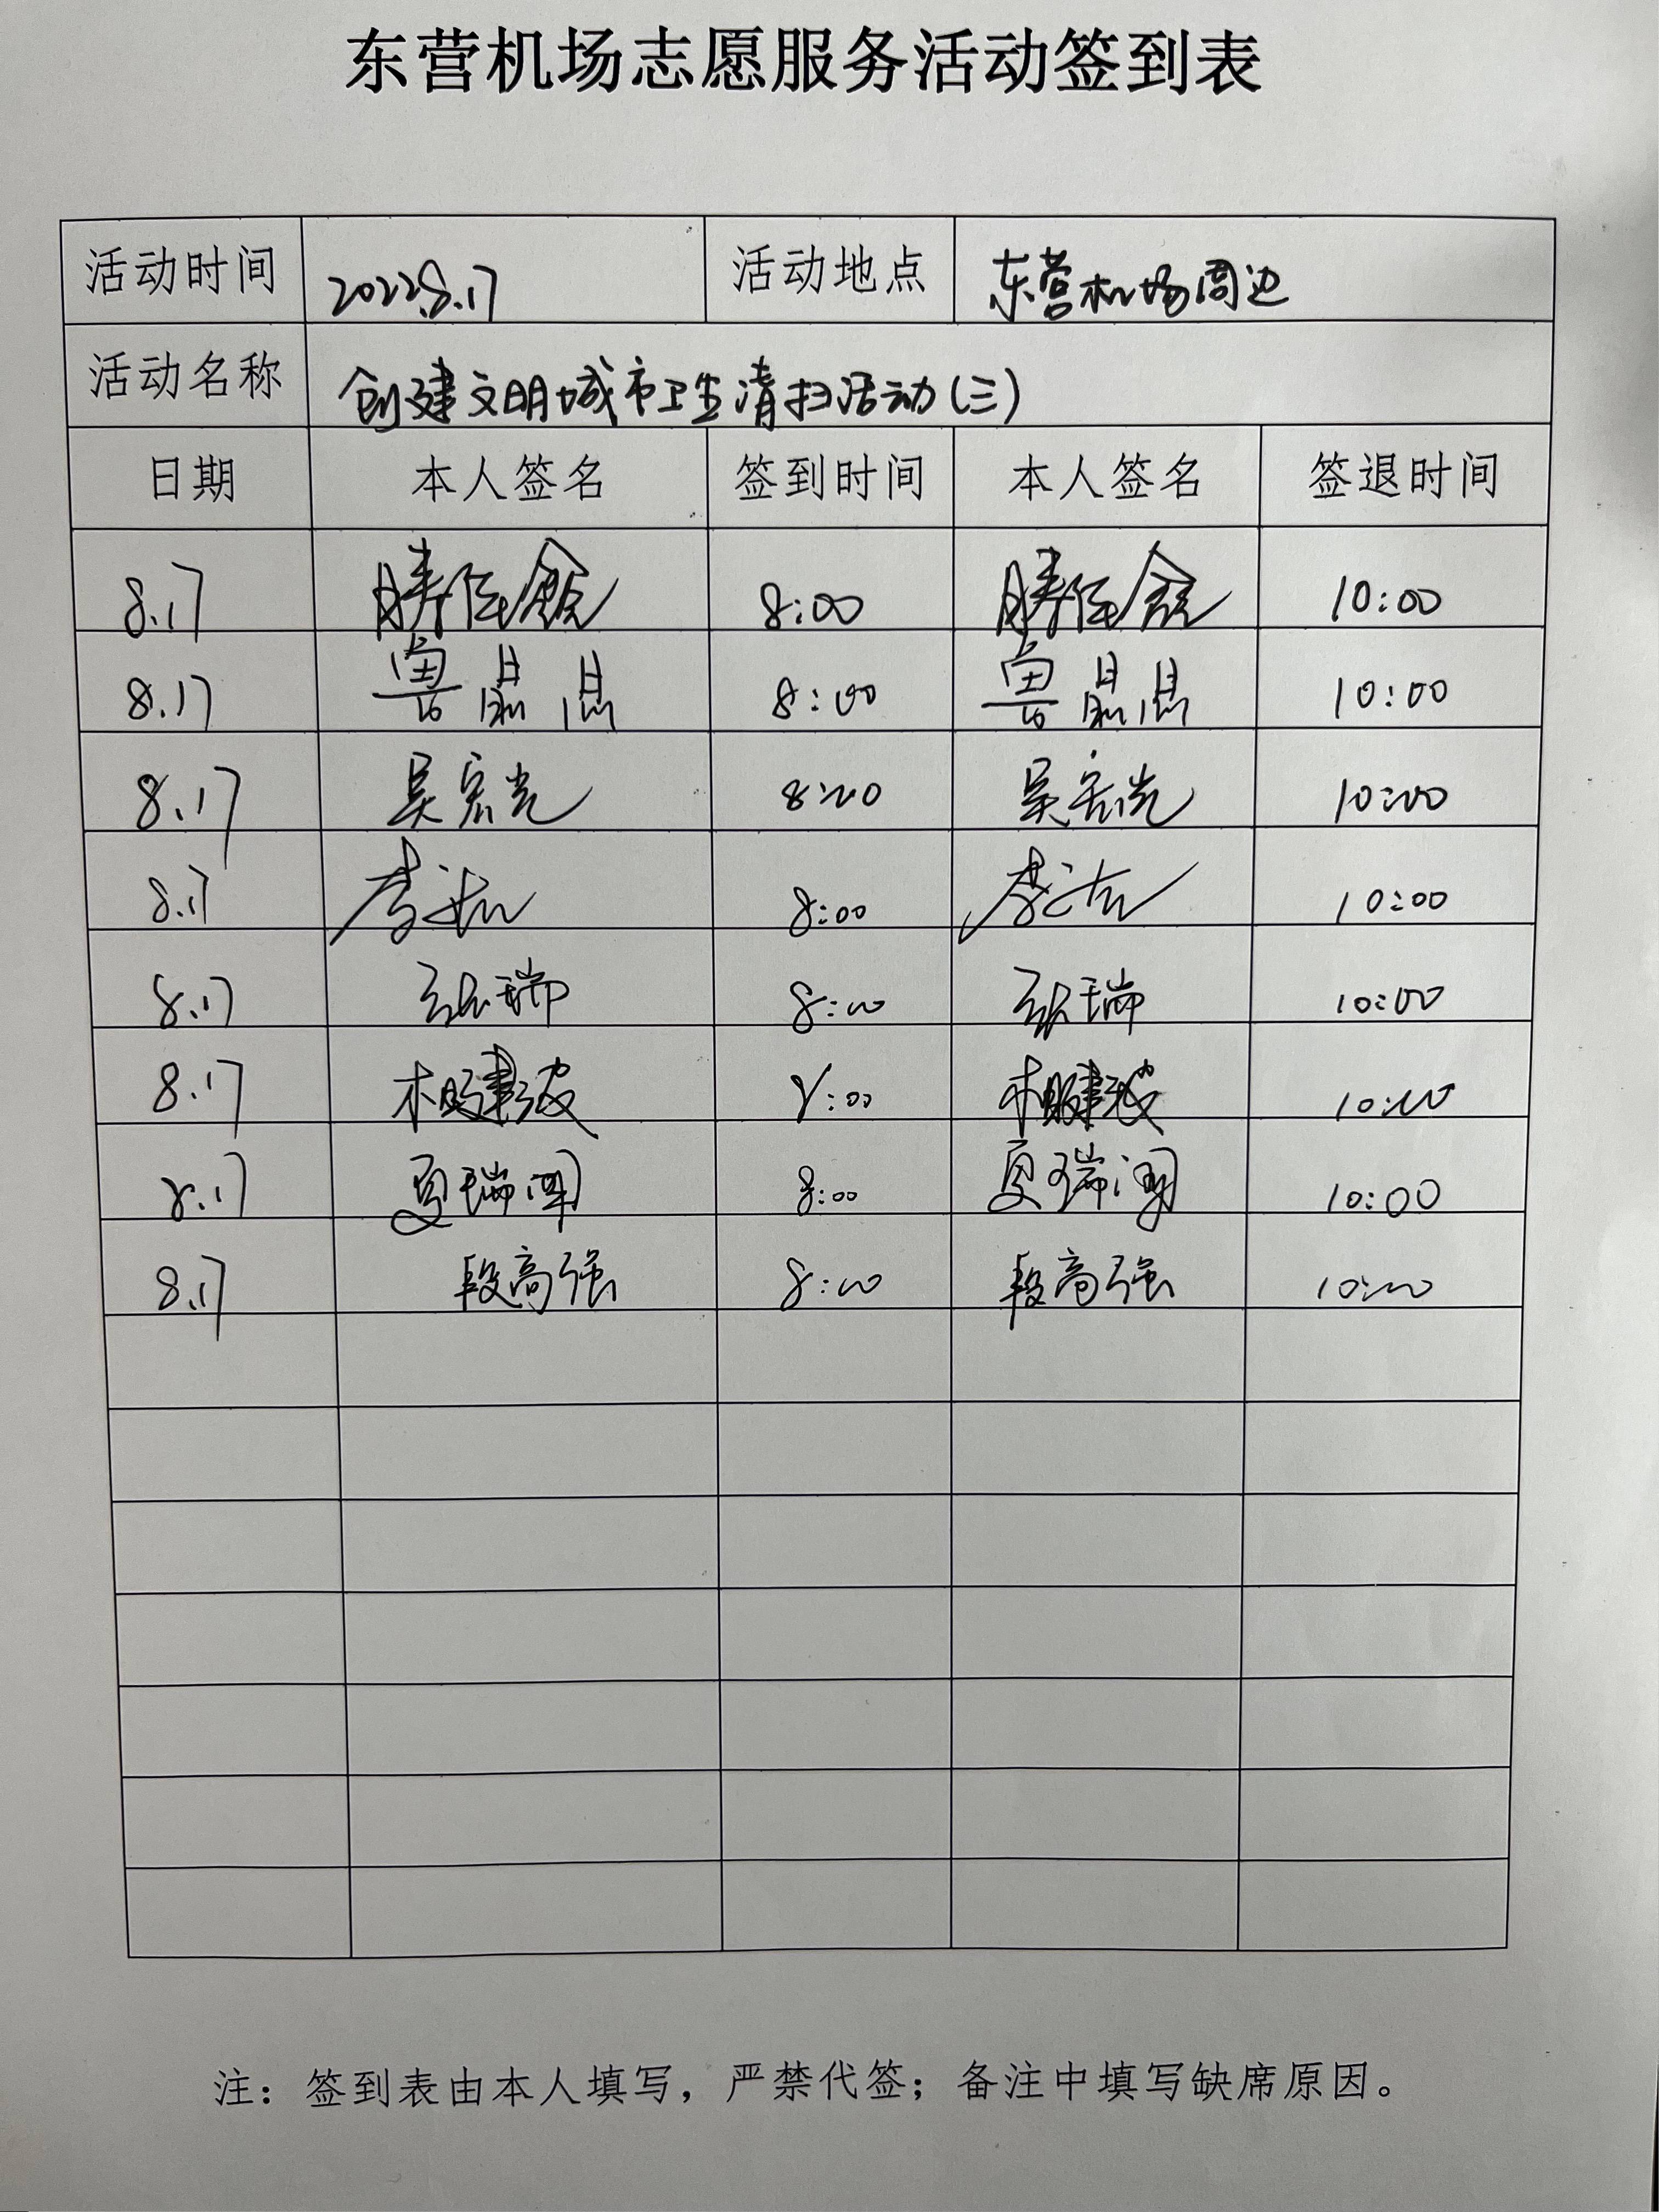 东营机场志愿服务活动签到表
活动时间 2022.8.17 活动地点 东营机场周边
活动名称 创建文明城市卫生清扫活动(三)
日期 本人签名 签到时间 本人签名 签退时间
8.17 8:00 10:00
8.17 鲁晶晶 8:00 鲁晶晶 10:00
8.17 吴宏光 8:00 吴宏光 10:00
8.17 李 8:00 李 10:00
8.17 张瑞 8:00 张瑞 10:00
8.17 8:00 10:00
8.17 夏瑞 8:00 夏瑞 10:00
8.17 段高强 8:00 段高强 10:00
注：签到表由本人填写，严禁代签；备注中填写缺席原因。